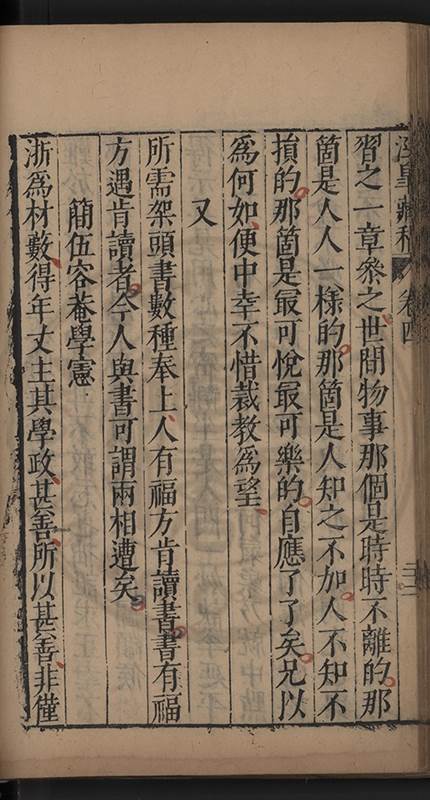 習之一章參之世間物事那個是時時不離的那
箇是人人一樣的那箇是人知之不加人不知不
損的那箇是最可悅最可樂的自應了了矣兄以
為何如便中幸不惜裁教為望
又
所需架頭書數種奉上人有福方肯讀書書有福
方遇肯讀者今人與書可謂兩相遭矣
簡伍容菴學憲
浙為材數得年丈主其學政甚善所以甚善非僅
藏稿
卷四